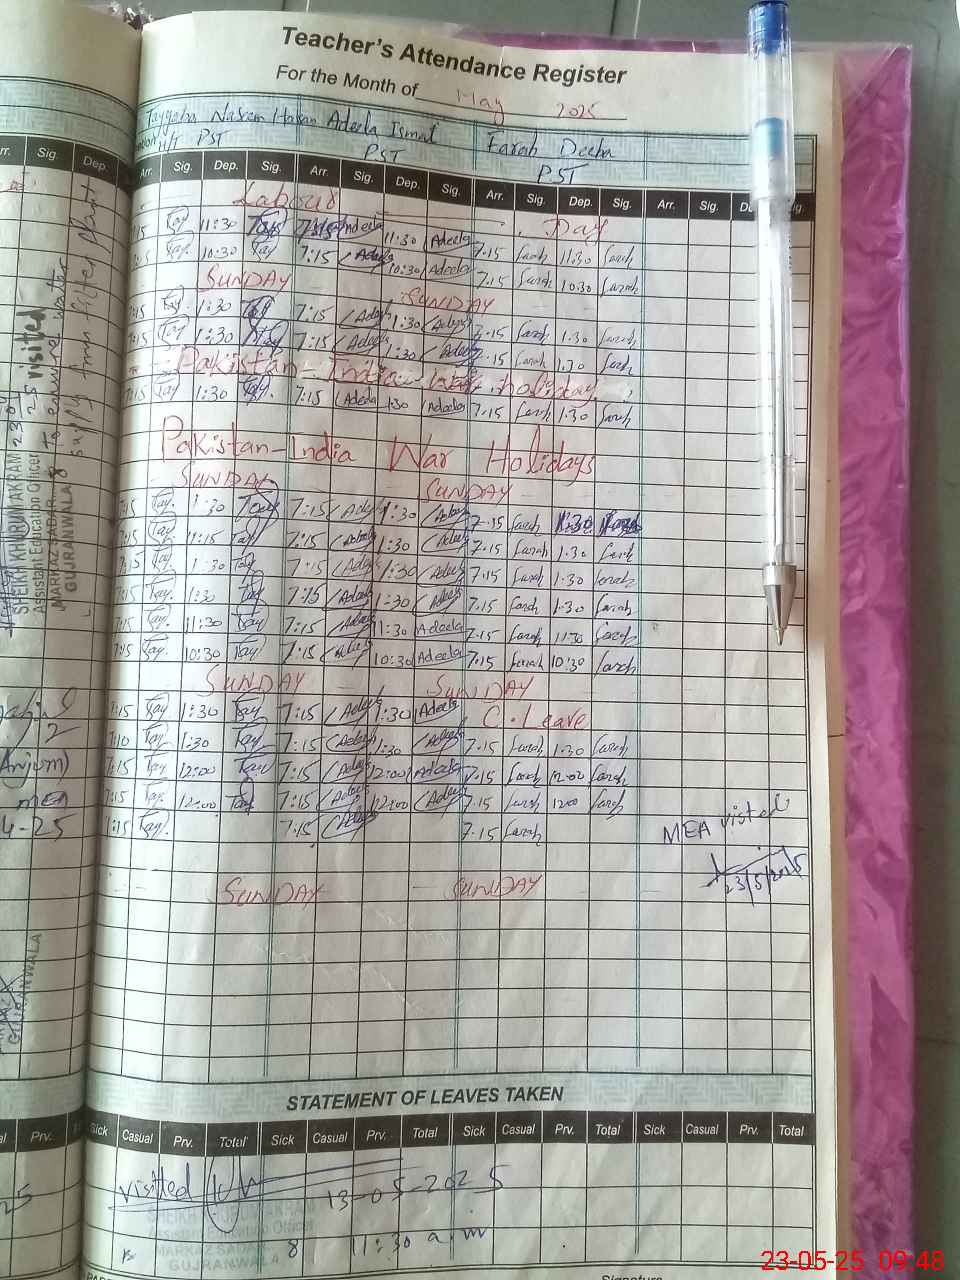 Teacher's Attendance Register
For the Month of May 2025
Tayyaba Naseem Hasan Adeela Ismat Farah Deeba
H/T PST PST PST
Arr. Sig. Dep. Sig. Arr. Sig. Dep. Sig. Arr. Sig. Dep. Sig. Arr. Sig.
Labour Day
7:15 Tay 11:30 Tay 7:15 Adeela 11:30 Adeela 7:15 Farah 11:30 Farah
7:15 Tay 10:30 Tay 7:15 Adeela 10:30 Adeela 7:15 Farah 10:30 Farah
SUNDAY SUNDAY
7:15 Tay 1:30 Tay 7:15 Adeela 1:30 Adeela 7:15 Farah 1:30 Farah
7:15 Tay 1:30 Tay 7:15 Adeela 1:30 Adeela 7:15 Farah 1:30 Farah
Pakistan-India War holiday
7:15 Tay 1:30 Tay 7:15 Adeela 1:30 Adeela 7:15 Farah 1:30 Farah
Pakistan-India War Holidays
SUNDAY SUNDAY
7:15 Tay. 1:30 Tay 7:15 Adeela 1:30 Adeela 7:15 Farah 1:30 Farah
7:15 Tay 11:15 Tay 7:15 Adeela 1:30 Adeela 7:15 Farah 1:30 Farah
7:15 Tay 1:30 Tay 7:15 Adeela 1:30 Adeela 7:15 Farah 1:30 Farah
7:15 Tay. 1:30 Tay 7:15 Adeela 1:30 Adeela 7:15 Farah 1:30 Farah
7:15 Tay 11:30 Tay 7:15 Adeela 11:30 Adeela 7:15 Farah 11:30 Farah
7:15 Tay. 10:30 Tay 7:15 Adeela 10:30 Adeela 7:15 Farah 10:30 Farah
SUNDAY SUNDAY
7:15 Tay 1:30 Tay 7:15 Adeela 1:30 Adeela C. Leave
7:10 Tay 1:30 Tay 7:15 Adeela 1:30 Adeela 7:15 Farah 1:30 Farah
7:15 Tay 12:00 Tay 7:15 Adeela 12:00 Adeela 7:15 Farah 12:00 Farah
7:15 Tay. 12:00 Tay 7:15 Adeela 12:00 Adeela 7:15 Farah 12:00 Farah
7:15 Tay. 7:15 Adeela 7:15 Farah
MEA visted
23/5/2025
SUNDAY SUNDAY
STATEMENT OF LEAVES TAKEN
Sick Casual Prv. Total Sick Casual Prv. Total Sick Casual Prv. Total Sick Casual Prv. Total
visitted 13-05-2025
SHEIKH KHURUM AKRAM
Assistant Education Officer
MARKAZ SADAR
GUJRANWALA
8 11:30 a.m
Signature
rr. Sig. Dep.
visited
SHEIKH KHURUM AKRAM
Assistant Education Officer
MARKAZ SADAR
GUJRANWALA
Anjum)
MEA
4-25
Prv.
23-05-25 09:48